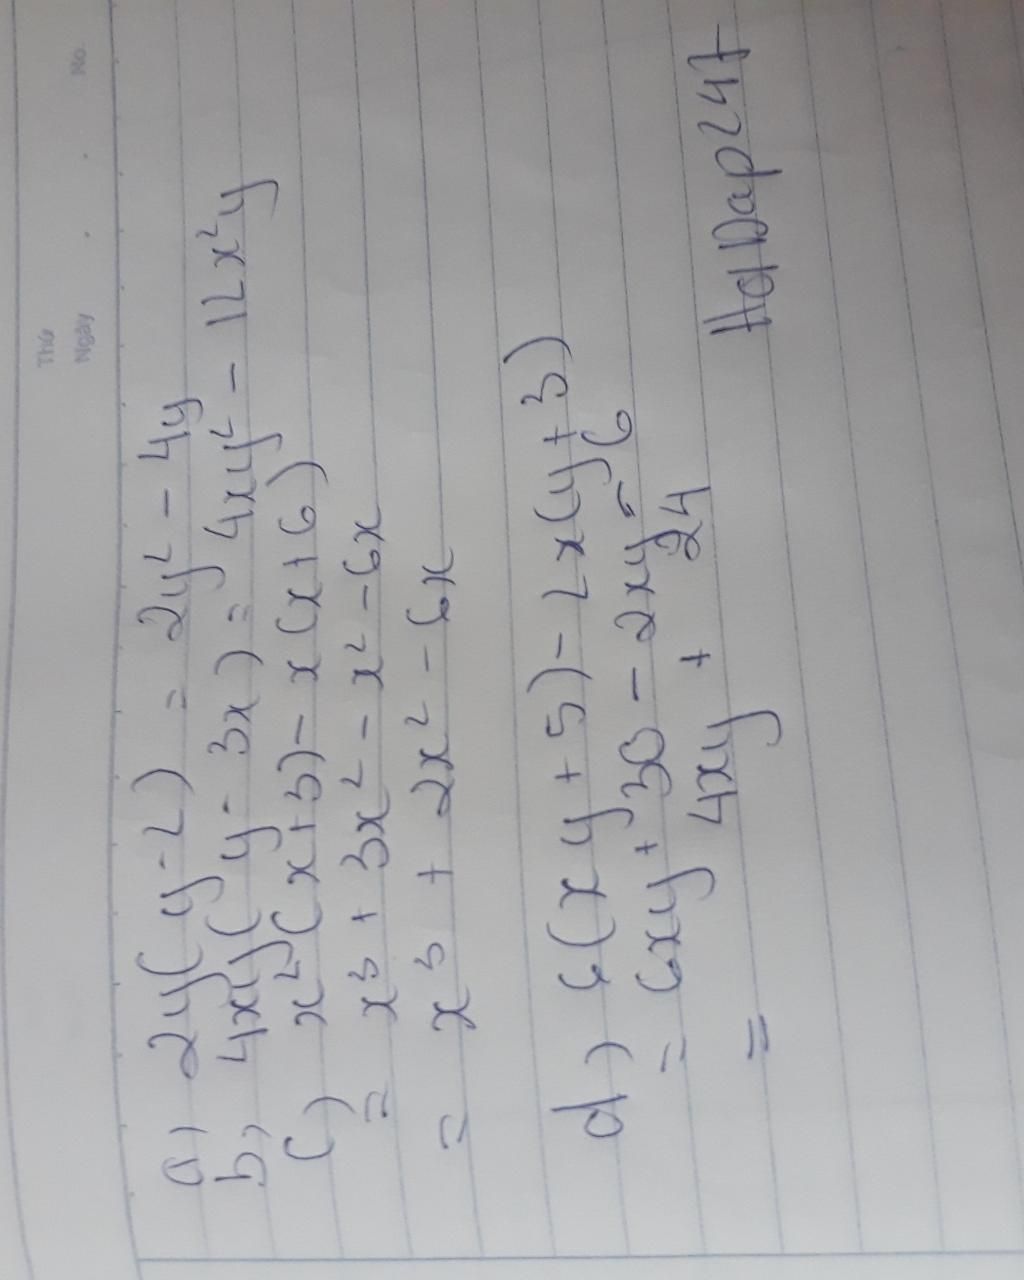 Thứ
Ngày . . No.
a) 2y(y-2) = 2y² - 4y
b) 4xy(y - 3x) = 4xy² - 12x²y
c) x²(x+3) - x(x+6)
= x³ + 3x² - x² - 6x
= x³ + 2x² - 6x
d) 6(xy + 5) - 2x(y+3)
= 6xy + 30 - 2xy - 6
= 4xy + 24
HoiDap247